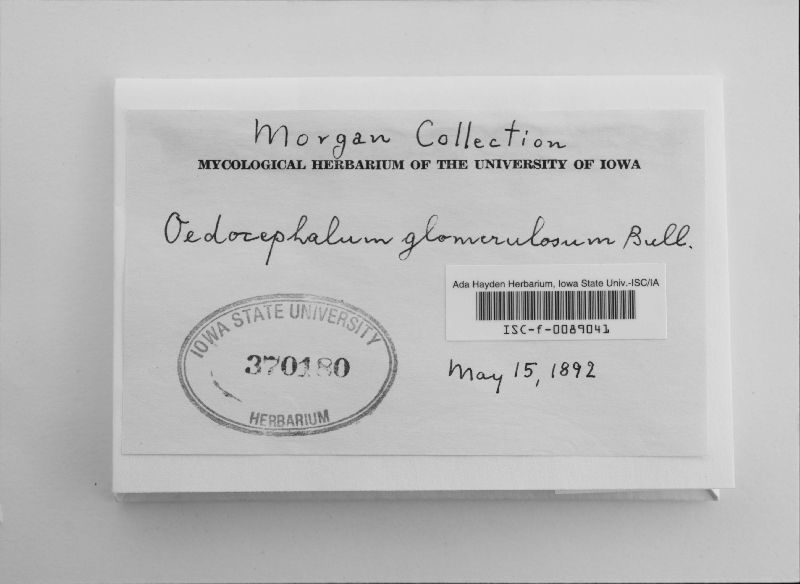 Morgan Collection
MYCOLOGICAL HERBARIUM OF THE UNIVERSITY OF IOWA
Oedocephalum glomerulosum Bull.
Ada Hayden Herbarium, Iowa State Univ.-ISC/IA
ISC-f-0089041
IOWA STATE UNIVERSITY
370180
HERBARIUM
May 15, 1892